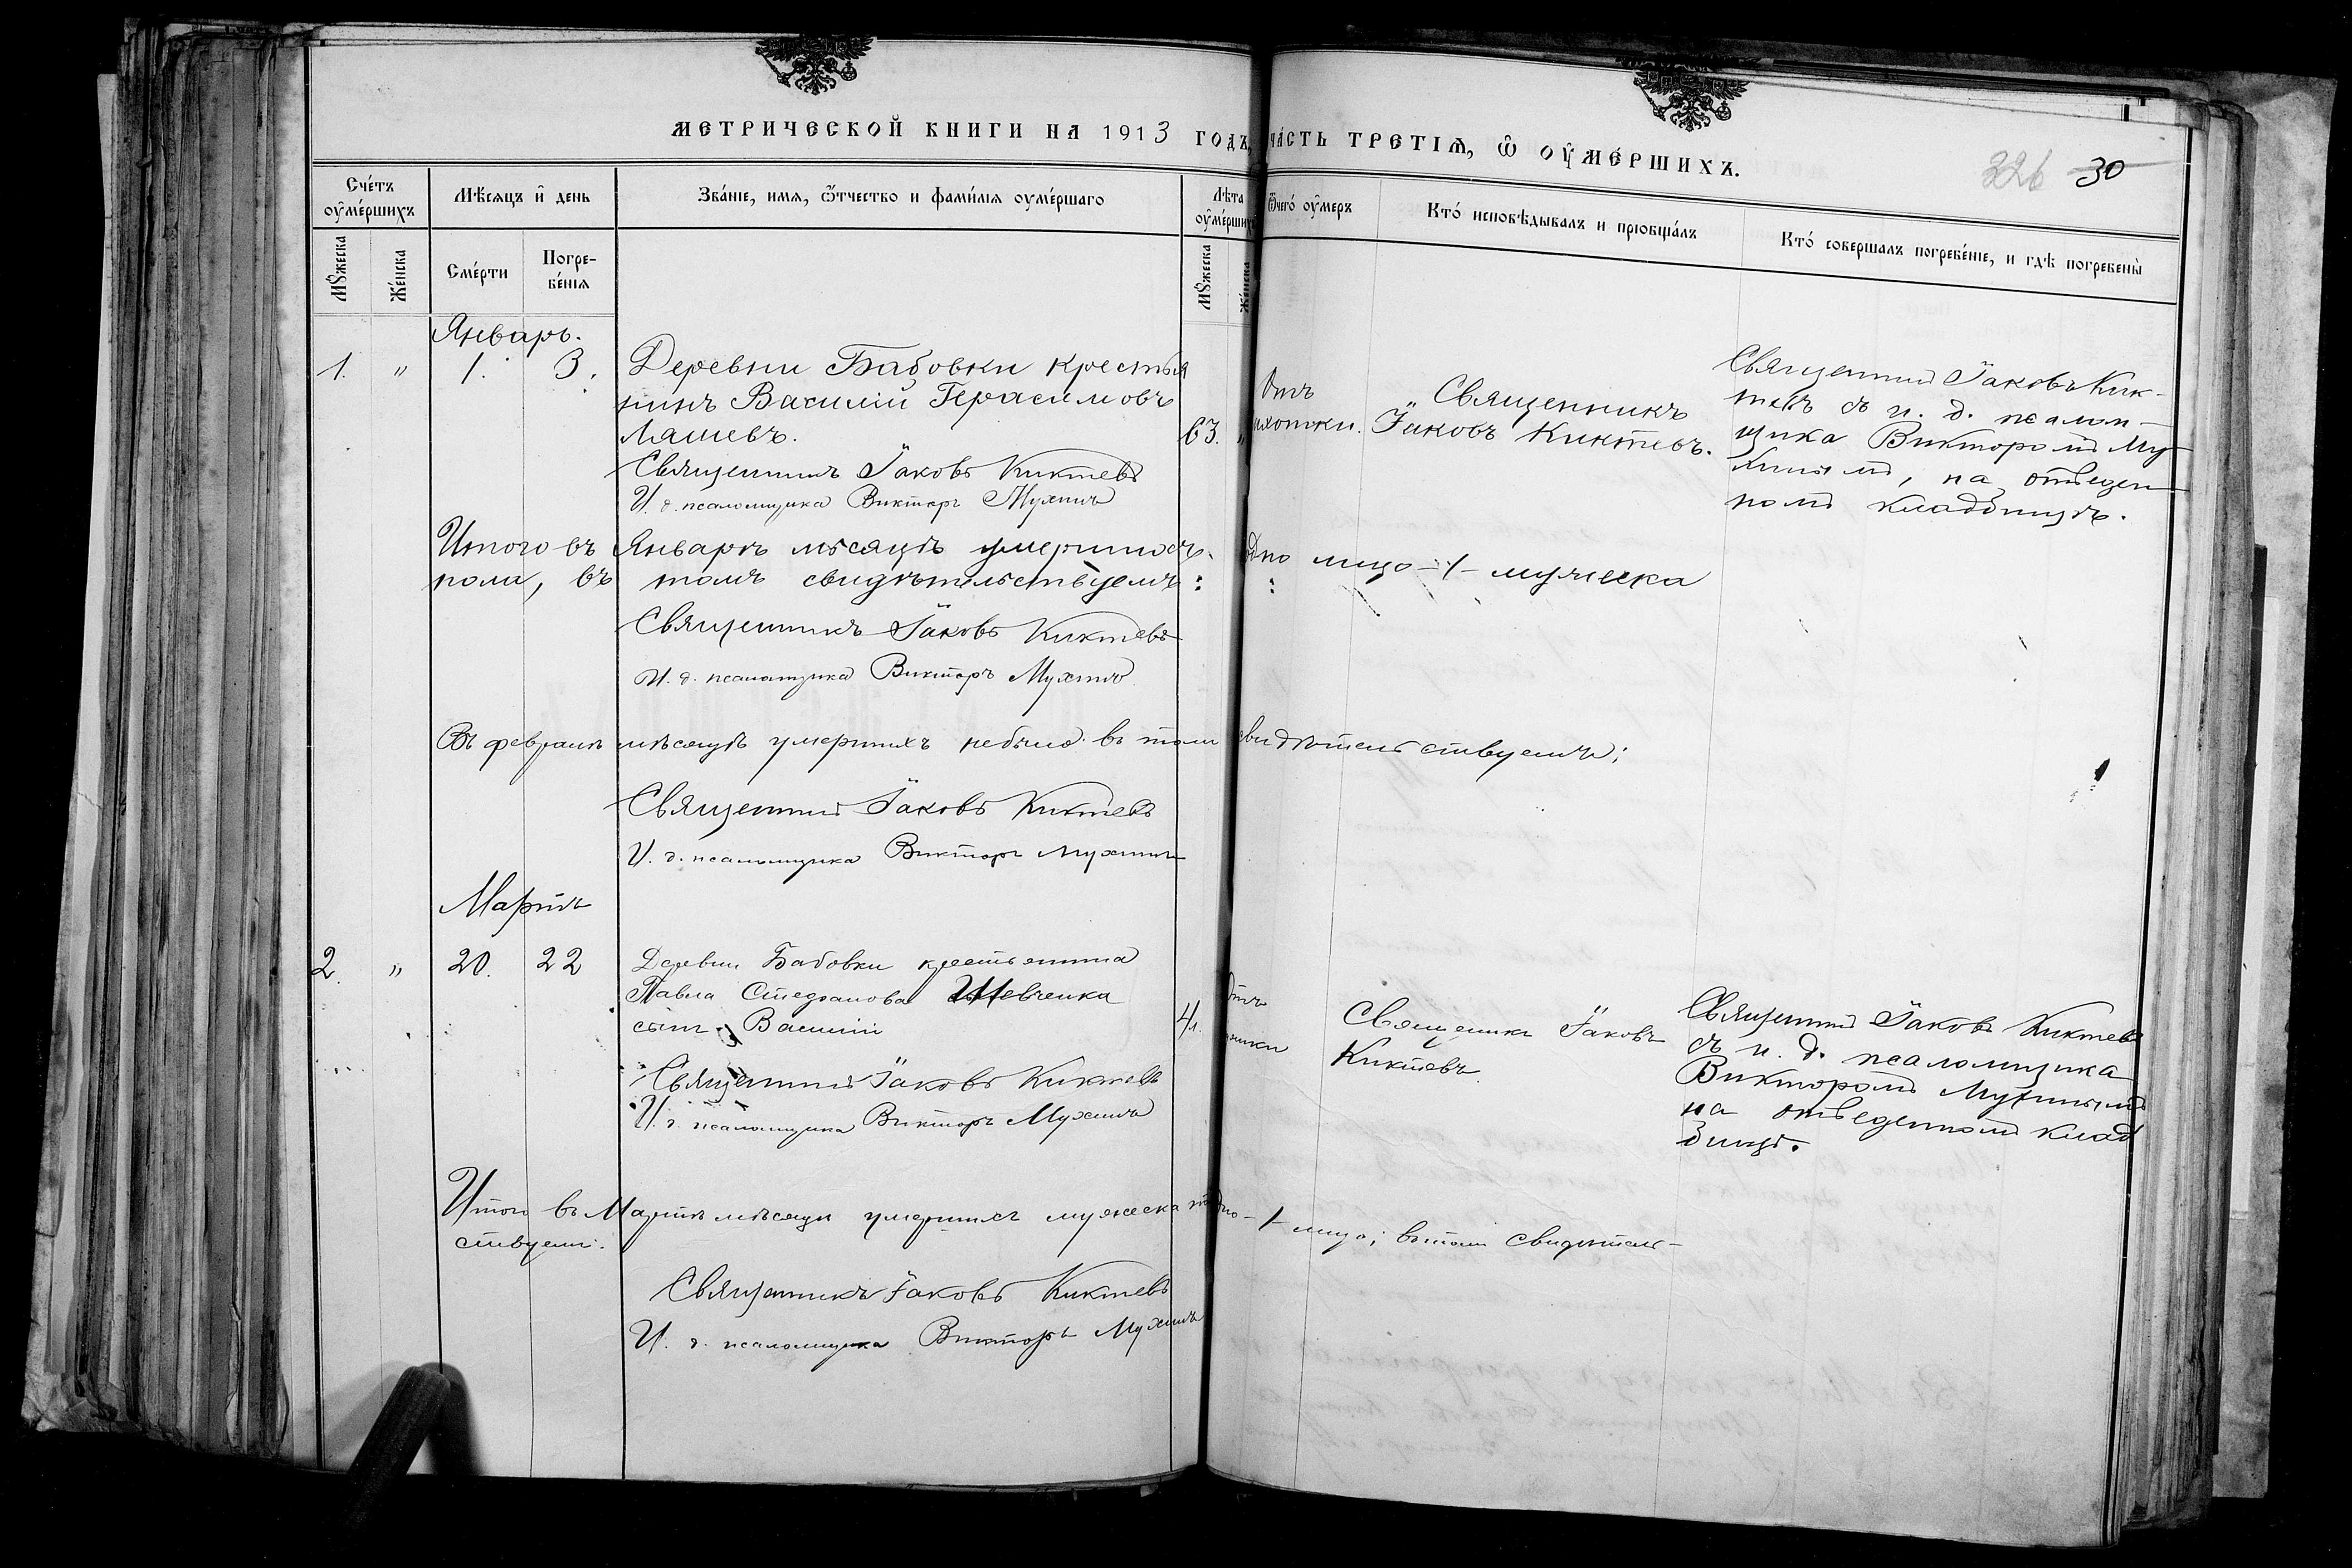 МЕТРИЧЕСКОЙ КНИГИ НА 1913 ГОДЪ, ЧАСТЬ ТРЕТІѦ, Ѡ ОУМЕРШИХЪ.
326 30
Счетъ оумершихъ
Мѣсяцъ и день
Званіе, имя, Ѿчество и фамилія оумершаго
Лѣта оумершихъ
Ѿчего оумеръ
Кто исповѣдывалъ и пріобщалъ
Кто совершалъ погребеніе, и гдѣ погребены
Мꙋжеска
Женска
Смерти
Погре-
бенія
Мꙋжеска
Женска
Январь.
1. " 1. 3.
Деревни Бабовки крестья
нинъ Василій Герасимовъ
Ляшевъ.
Священникъ Іаковъ Киктевъ
И. д. псаломщика Викторъ Мухинъ
63. "
Отъ
чахотки.
Священникъ
Іаковъ Киктевъ.
Священник Іаковъ Кик-
тевъ съ и. д. псалом-
щика Викторомъ Му
хинымъ, на отведен
номъ кладбищѣ.
Итого въ Январѣ мѣсяцѣ умершихъ одно лицо -1- мужеска
пола, въ томъ свидѣтельствуемъ:
Священникъ Іаковъ Киктевъ
И. д. псаломщика Викторъ Мухинъ
Въ февралѣ мѣсяцѣ умершихъ небыло въ томъ свидѣтельствуемъ:
Священник Іаковъ Киктевъ
И. д. псаломщика Викторъ Мухинъ
Мартъ
2. " 20. 22
Деревни Бабовки крестьянина
Павла Стефанова Шевченка
сынъ Василій
4.
Отъ
Священникъ Іаковъ
Киктевъ
Священник Іаковъ Киктевъ
съ и. д. псаломщика
Викторомъ Мухинымъ
на отведенномъ клад
бищѣ.
Священник Іаковъ Киктевъ
И. д. псаломщика Викторъ Мухинъ
Итого въ Мартѣ мѣсяцѣ умершихъ мужеска одно -1- лицо; въ томъ свидѣтель-
ствуемъ:
Священникъ Іаковъ Киктевъ
И. д. псаломщика Викторъ Мухинъ